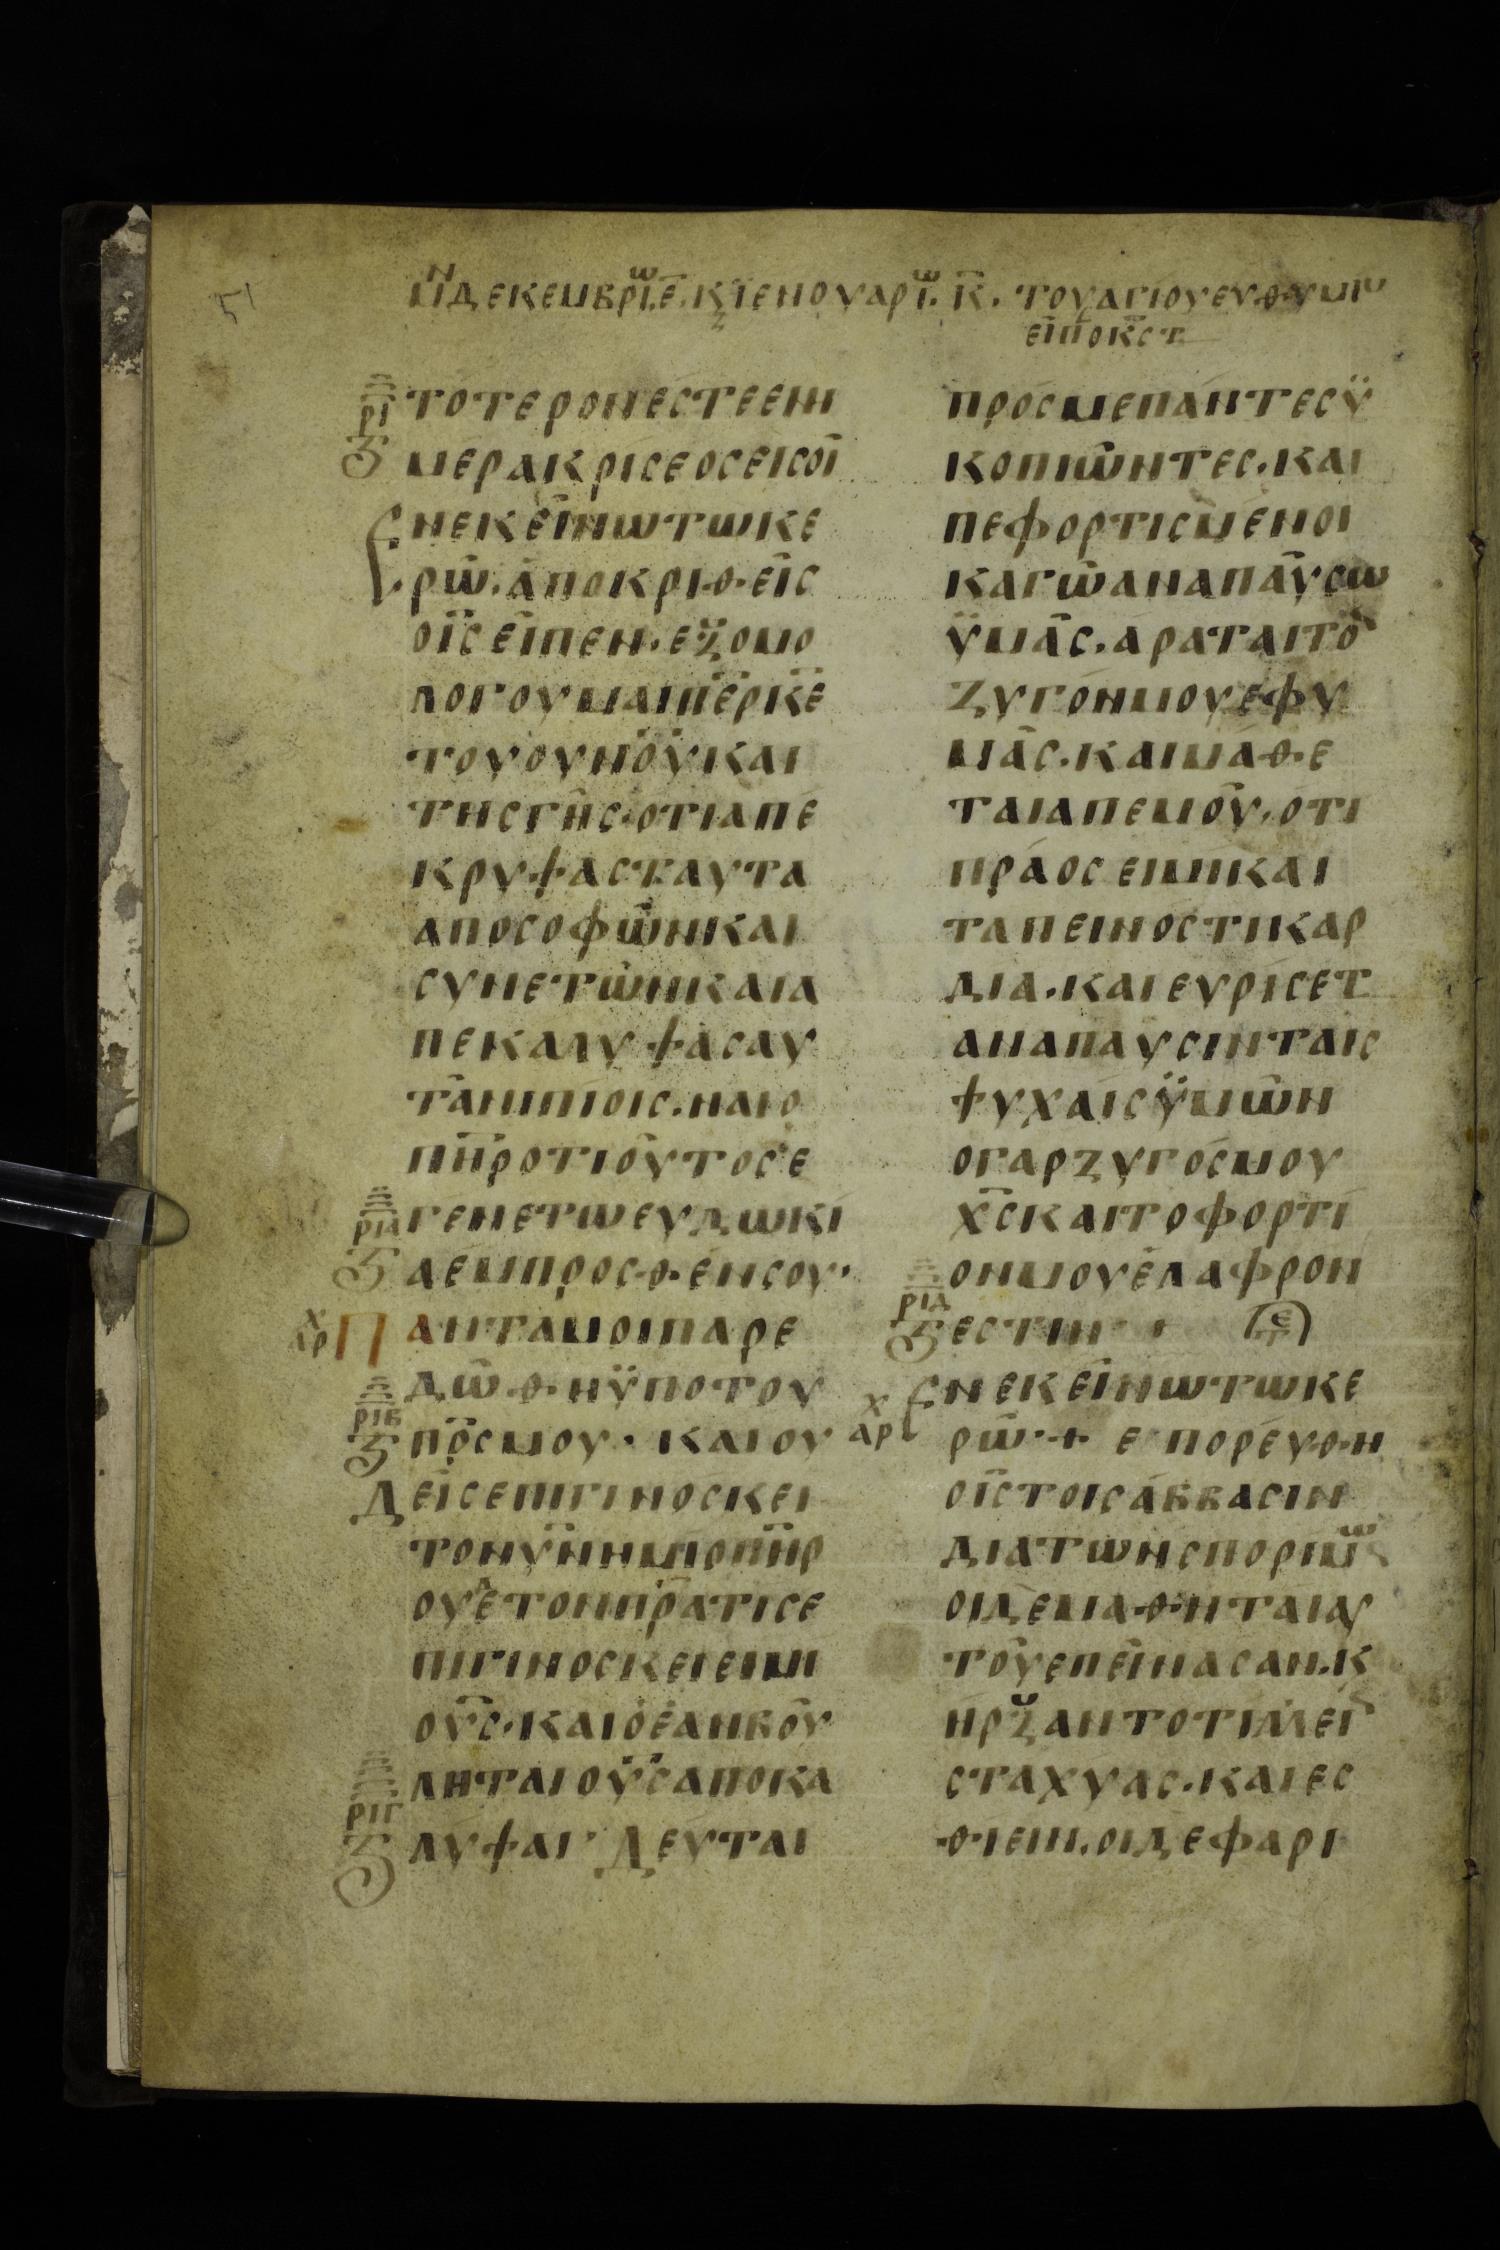 μη δεκεμβρίω ε. κ, ιενουαρίω. κ. του αγιου ευθυμιω
ειποκστ
ρι τοτερονεστεενη
ζ μερακρισεοσεισοι
Ενεκεινωτωκε
ρω. αποκριθεις
οις ειπεν. εξομο
λογουμαιπερκε
τουουνουκαι
τησγης. οτιαπε
κρυψασταυτα
αποσοφωνκαι
συνετωνκαια
πεκαλυψασαυ
τανιπιοις. ναιο
πηροτιουτοσε
ρια γενετωευδωκι
ζ αεμπροσθενσου·
χ αρ Πανταμοιπαρε
ριβ δωθηυποτου
ζ πρσμου · καιου
Δεισεπιγινοσκει
τονυνημιοπηρ
ουδετονπρατισε
πιγινοσκειειμι
ουσ. καιοεανβου
ληταιουσαποκα
ριγ ζ λυψαι· Δευται
προσμεπαντεσϋ
κοπιωντες. και
πεφορτισμενοι
καγωαναπαυσω
ϋμας. αραταιτο
ζυγονμουεφυ
μας. καιμαθε
ταιαπεμου. οτι
πραοσειμικαι
ταπεινοστικαρ
δια. καιευρισετ
αναπαυσινταις
ψυχαισϋμων
ογαρζυγοσμου
χσκαιτοφορτι
ονμουελαφρον
ριδ ζ εστιν· τε
χ αρ Ενεκεινωτωκε
ρω·+ επορευθη
οιστοισαββασιν
διατωνσποριμω
οιδεμαθηταιαυ
τουεπεινασαν. κ
ηρξαντοτιλλει
σταχυας. καιεσ
θιειν. οιδεφαρι